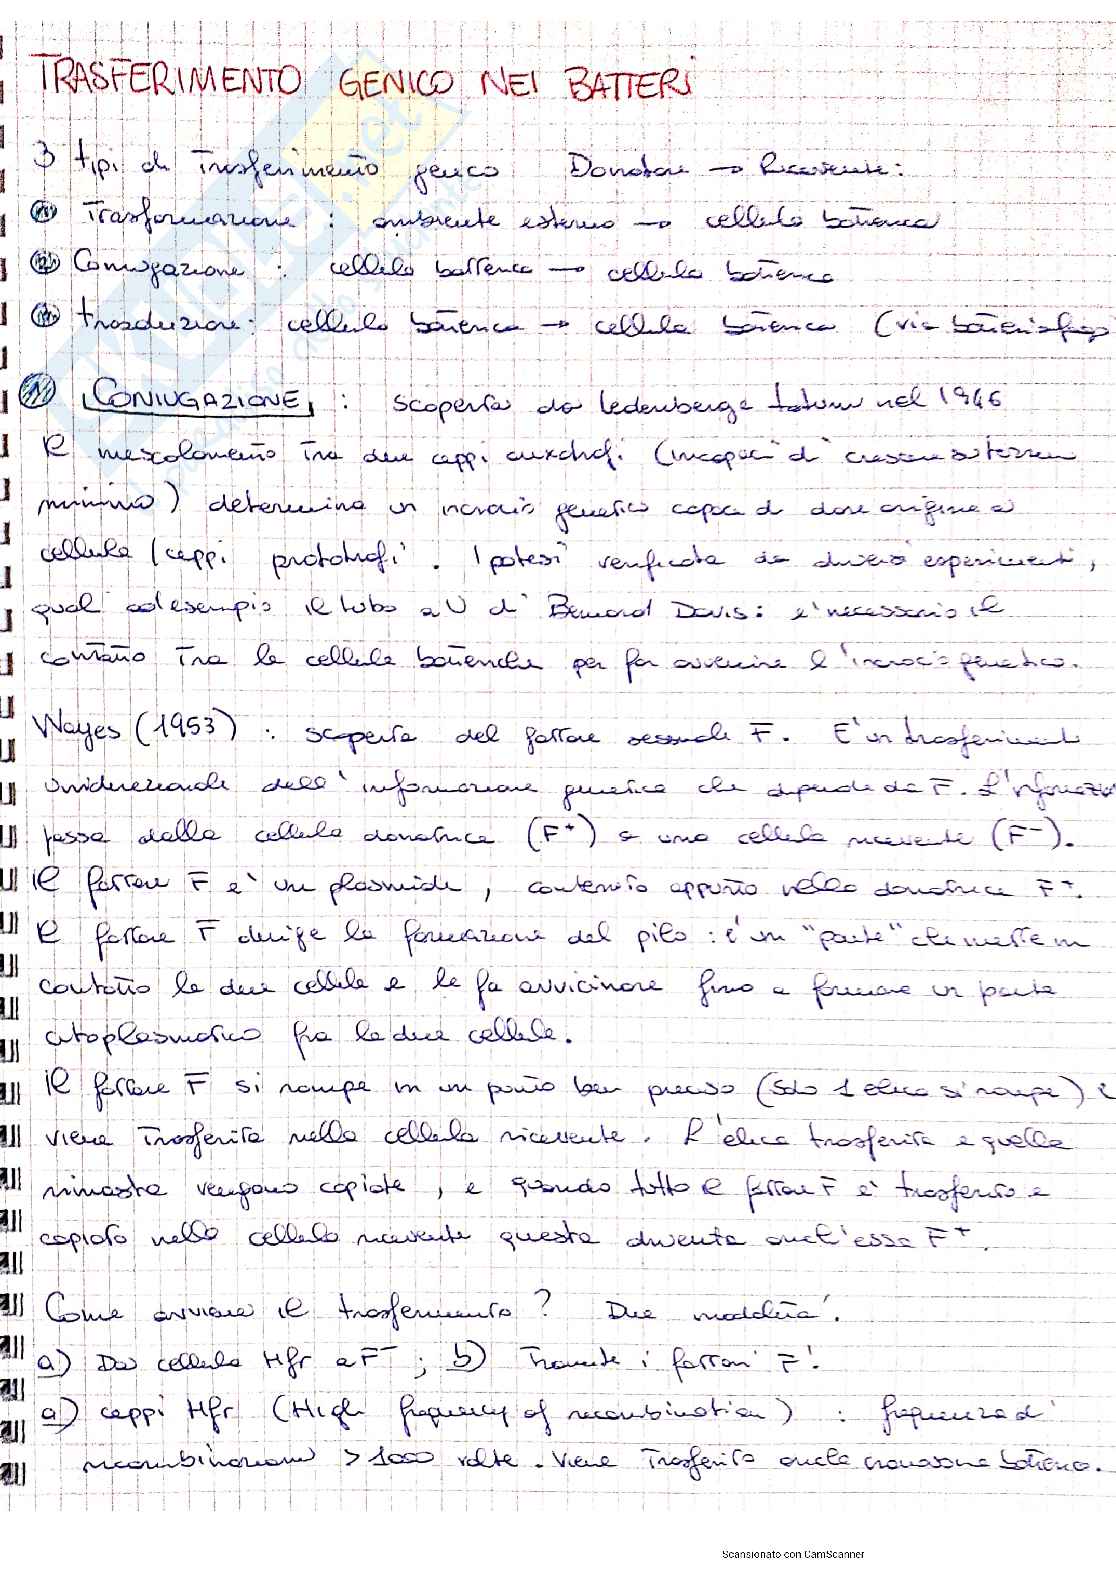 TRASFERIMENTO GENICO NEI BATTERI
3 tipi di Trasferimento genico Donatore → Ricevente:
① Trasformazione: ambiente esterno → cellula batterica
② Coniugazione: cellula batterica → cellula batterica
③ trasduzione: cellula batterica → cellula batterica (via batteriofagi)
① CONIUGAZIONE: scoperta da Lederberg e tatum nel 1946
Il mescolamento tra due ceppi auxotrofi (incapaci di crescere su terreno
minimo) determina un incrocio genetico capace di dare origine a
cellule/ceppi prototrofi. Ipotesi verificata da diversi esperimenti,
quali ad esempio il tubo a U di Bernard Davis: e' necessario il
contatto tra le cellule batteriche per far avvenire l'incrocio genetico.
Hayes (1953): scoperta del fattore sessuale F. E' un trasferimento
unidirezionale dell'informazione genetica che dipende da F. L'informazione
passa dalla cellula donatrice (F+) a una cellula ricevente (F-).
Il fattore F e' un plasmide, contenuto appunto nella donatrice F+.
Il fattore F dirige la formazione del pilo: e' un "ponte" che mette in
contatto le due cellule e le fa avvicinare fino a formare un ponte
citoplasmatico fra le due cellule.
Il fattore F si rompe in un punto ben preciso (solo 1 elica si rompe) e
viene trasferita nella cellula ricevente. L'elica trasferita e quella
rimasta vengono copiate, e quando tutto il fattore F e' trasferito e
copiato nella cellula ricevente questa diventa anch'essa F+.
Come avviene il trasferimento? Due modalita'.
a) Da cellule Hfr a F-; b) Tramite i fattori F'.
a) ceppi Hfr (High frequency of recombination): frequenza di
ricombinazione >1000 volte. Viene trasferito anche cromosoma batterico.
Scansionato con CamScanner